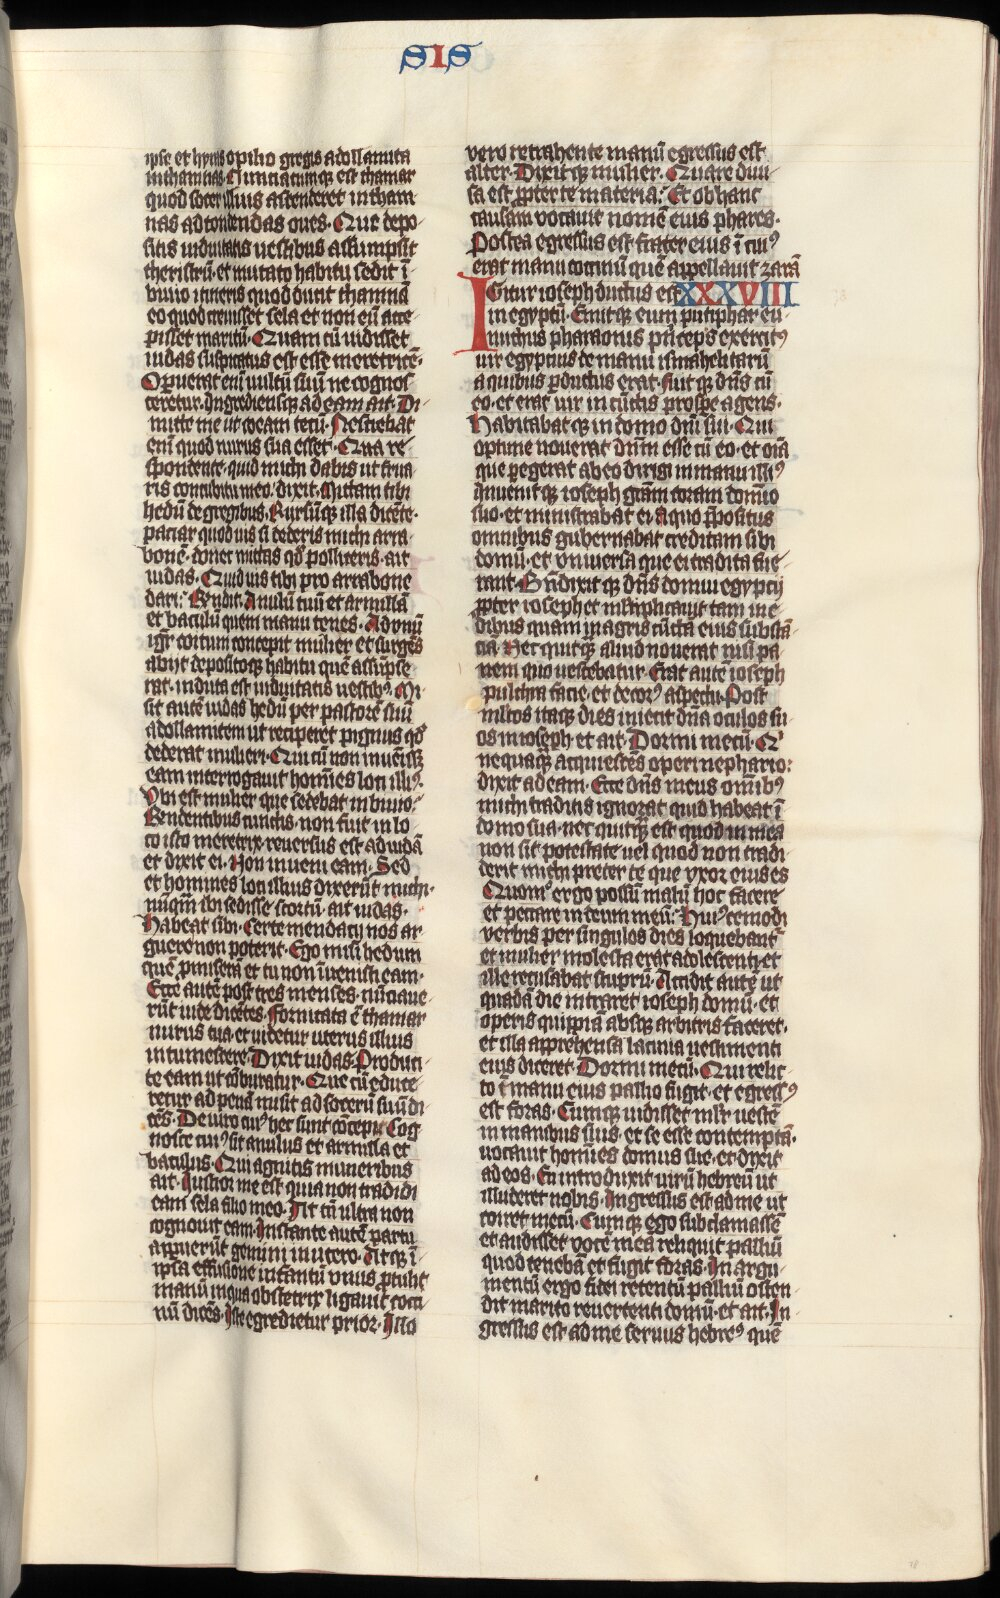 SIS
ipse et hyras opilio gregis adollamita
in thamnas. Nunciatumqꝫ est thamar
quod socer illius ascenderet in tham
nas ad tondendas oues. Que depo
sitis uiduitatis uestibus assumpsit
theristrū. et mutato habitu sedit ī
biuio itineris quod ducit thamnā
eo quod creuisset sela et non eū acce
pisset maritū. Quam cū uidisset
iudas suspicatus est esse meretricē.
Operuerat enī uultū suū ne cognos
ceretur. Ingrediensqꝫ ad eam ait. Di
mitte me ut coeam tecū. Nesciebat
enī quod nurus sua esset. Qua re
spondente. quid michi dabis ut frua
ris concubitu meo. dixit. Mittam tibi
hedū de gregibus. Rursūqꝫ illa dicēte.
paciar quod uis si dederis michi arra
bonē. donec mittas qḋ polliceris. ait
iudas. Quid uis tibi pro arrabone
dari. Rñdit. Anulū tuū et armillā
et baculū quem manu tenes. Ad vnū
igr̄ coitum concepit mulier et surgēs
abijt depositoqꝫ habitu quē assūpse
rat. induta est uiduitatis uestibꝰ. Mi
sit autē iudas hedū per pastorē suū
adollamitem ut reciperet pignus qḋ
dederat mulieri. Qui cū non inuēissꝫ
eam interrogauit homīes loci illiꝰ.
Vbi est mulier que sedebat in biuio.
Rñdentibus cunctis. non fuit in lo
co isto meretrix. reuersus est ad iudā
et dixit ei. Non inueni eam. Sed
et homines loci illius dixerūt michi.
nūqm̄ ibi sedisse scortū. ait iudas.
Habeat sibi. Certe mendacij nos ar
guere non poterit. Ego misi hedum
quē ꝓmisera et tu non īuenisti eam.
Ecce autē post tres menses. nūciaue
rūt iude dicētes. Fornicata ē thamar
nurus tua. et uidetur uterus illius
intumescere. Dixit iudas. Produci
te eam ut cōburatur. Que cū educe
retur ad penā misit ad socerū suū di
cēs. De uiro cuiꝰ hec sunt cōcepi. Cog
nosce cuiꝰ sit anulus et armilla et
baculus. Qui agnitis muneribus
ait. Iustior me est quia non tradidi
eam sela filio meo. Att̄ ultra non
cognouit eam. Instante autē partu
apparuerūt gemini in utero. Atqꝫ ī
ipsa effusione infantū vnus ꝓtulit
manū in qua obstetrix ligauit cocci
nū dicēs. Iste egredietur prior. Illo
vero retrahente manū egressus est
alter. Dixitqꝫ mulier. Quare diui
sa est ꝓpter te materia. Et ob hanc
causam vocauit nomē eius phares.
Postea egressus est frater eius ī cuiꝰ
erat manu coccinū quē appellauit zarā
Igitur ioseph ductus est XXXVIII
in egyptū. Emitqꝫ eum putiphar eu
nuchus pharaonis prīceps exercitꝰ
uir egyptius de manu ismahelitarū
a quibus ꝑductus erat. fuitqꝫ dñs cū
eo. et erat uir in cūctis prospe agens.
Habitabatqꝫ in domo dnī sui. Qui
optime nouerat dnm̄ esse cū eo. et oīa
que gegerat ab eo dirigi in manu illiꝰ
Inuenitqꝫ ioseph grām coram domio
suo. et ministrabat ei a quo p̄positus
omnibus gubernabat creditam sibi
domū. et vniuersa que ei tradita fue
rant. Bn̄dixitqꝫ dñs domui egyptij
ꝓpter ioseph et mltiplicauit tam in e
dibus quam in agris cūcta eius substā
cia. Nec quitqꝫ aliud nouerat nisi pa
nem quo uescebatur. Erat autē ioseph
pulchra facie. et decorꝰ aspectu. Post
mltos itaqꝫ dies iniecit dñā oculos su
os in ioseph et ait. Dormi mecū. Qͥ
nequaqꝫ acquiescēs operi nephario:
dixit ad eam. Ecce dñs meus omībꝰ
michi traditis ignorat quid habeat ī
domo sua. nec quitqꝫ est quod in mea
non sit potestate uel quod non tradi
derit michi preter te que vxor eius es
Quomō ergo possū malū hoc facere
et peccare in deum meū. Huiꝰcemodi
verbis per singulos dies loquebant̄
et mulier molesta erat adolescenti. et
ille recusabat stuprū. Accidit autē ut
quadā die intraret ioseph domū. et
operis quippiā absqꝫ arbitris faceret.
et illa apprehensa lacinia uestimenti
eius diceret. Dormi mecū. Qui relic
to ī manu eius pallio fugit. et egressꝰ
est foras. Cumqꝫ uidisset mlr̄ uestē
in manibus suis. et se esse contemptā.
vocauit homīes domus sue. et dixit
ad eos. En introduxit uirū hebreū ut
illuderet nobis. Ingressus est ad me ut
coiret mecū. Cumqꝫ ego subclamassē
et audisset vocē meā reliquit palliū
quod tenebā et fugit foras. In argu
mentū ergo fidei retentū palliū osten
dit marito reuertenti domū. et ait. In
gressus est ad me seruus hebreꝰ quē